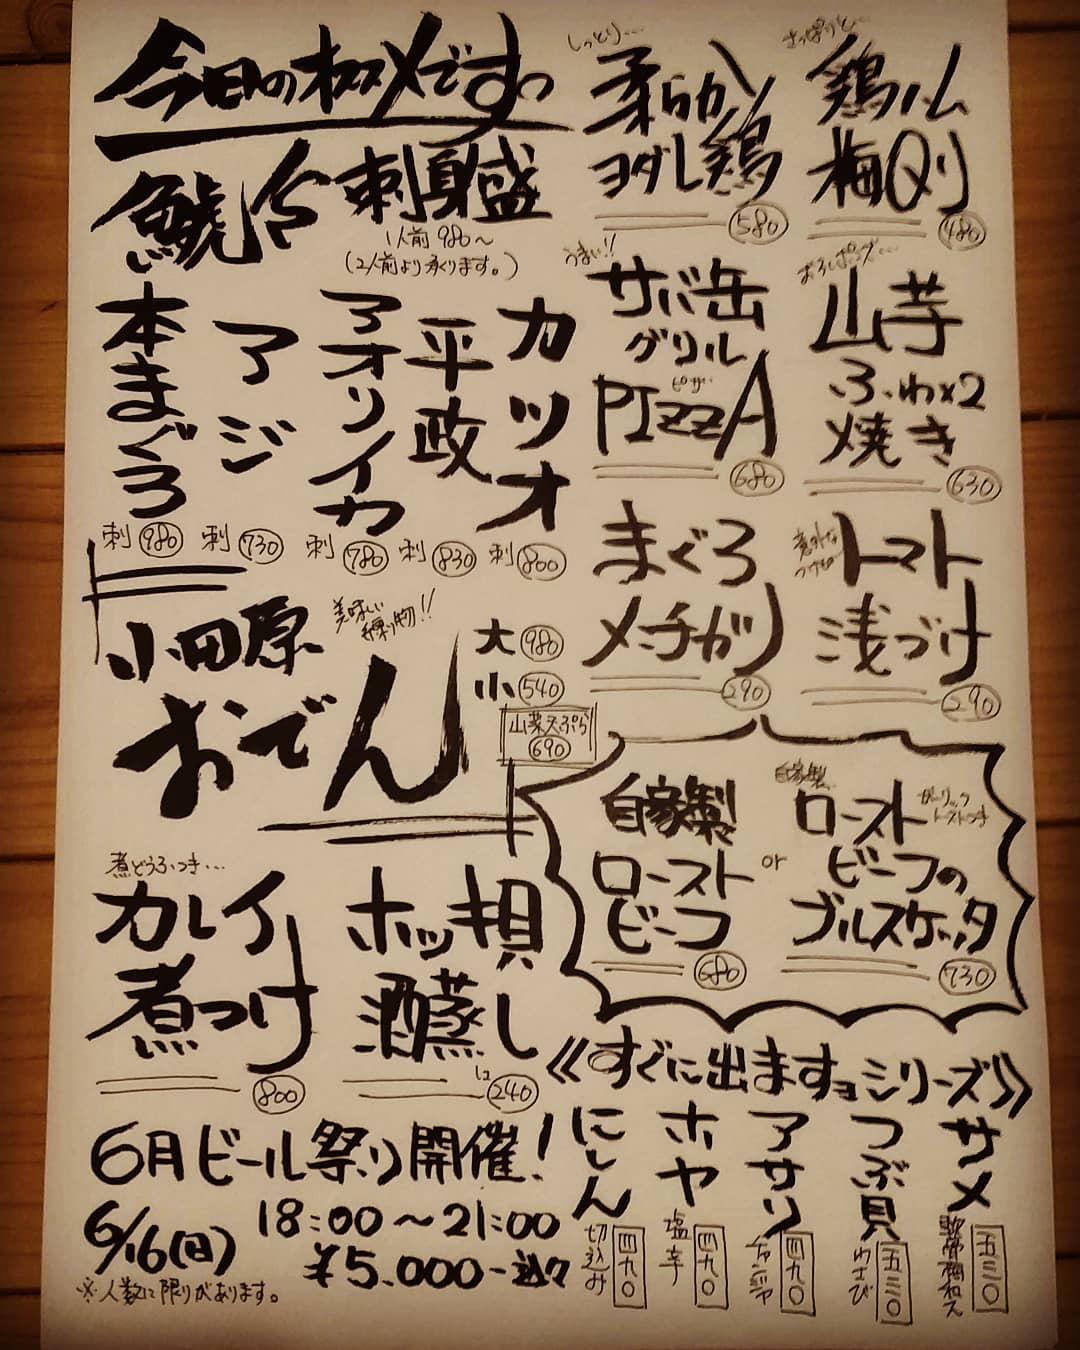 今日のオススメですっ
刺身盛
1人前980〜
(2人前より承ります。)
カツオ
刺800
平政
刺830
アオリイカ
刺780
アジ
刺730
本まぐろ
刺980
小田原
おでん
美味しい
練り物!!
大980
小540
山菜天ぷら
690
煮どうふつき…
カレイ
煮つけ
800
ホッキ貝
酒蒸し
1コ240
6月ビール祭り開催!
6/16(日)
18:00〜21:00
¥5.000-込々
※人数に限りがあります。
さっぱりと…
鶏ハム
梅肉
480
しっとり…
柔らか
ヨダレ鶏
580
うまい!!
サバ缶
グリル
ピザ
PIZZA
680
おろしポンズ…
山芋
ふわx2
焼き
630
まぐろ
メンチガツ
290
意外な
つけもの
トマト
浅づけ
290
自家製
ロースト
ビーフ
680
or
自家製
ロースト
ガーリック
トーストつき
ビーフの
ブルスケッタ
730
《すぐに出ますョシリーズ》
サメ
軟骨梅和え
五三〇
つぶ貝
わさび
五三〇
アサリ
チャンジャ
四九〇
ホヤ
塩辛
四九〇
にしん
切込み
四九〇